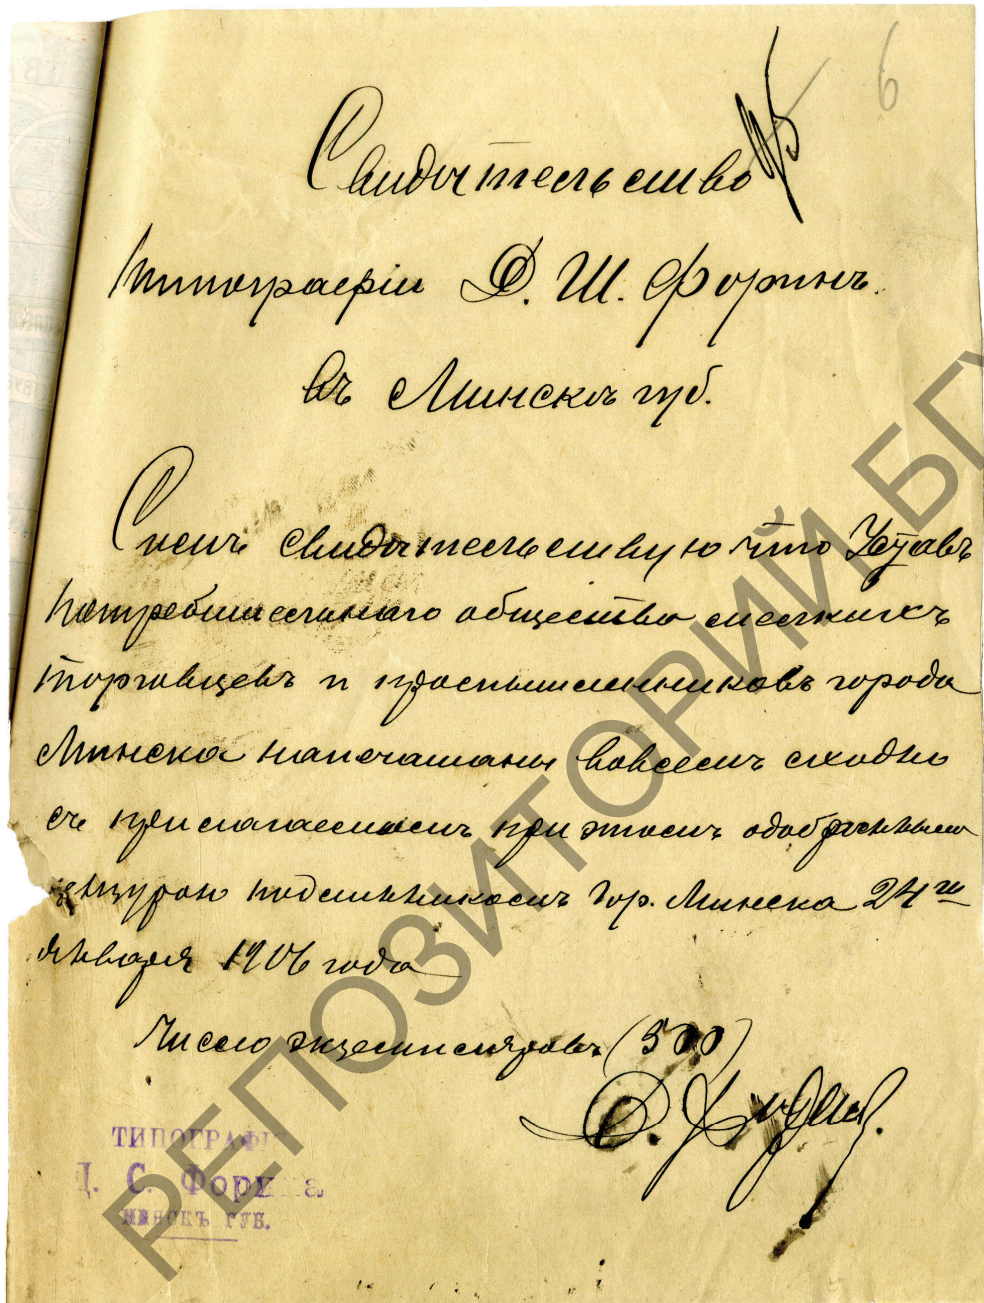 95
6
Свидѣтельство
типографіи Д. Ш. Форинъ.
въ Минскѣ губ.
Симъ свидѣтельствую что Уставъ
потребительнаго общества мелкихъ
торговцевъ и промышленниковъ города
Минска напечатаны вовсемъ сходно
съ прилагаемымъ при этомъ одобренным
цензурою подлинникомъ Гор. Минска 24го
января 1906 года
Число экземпляровъ (500)
Д. Форинъ.
ТИПОГРАФІЯ
Д. С. Форина
МИНСКЪ ГУБ.
РЕПОЗИТОРИЙ БГУ